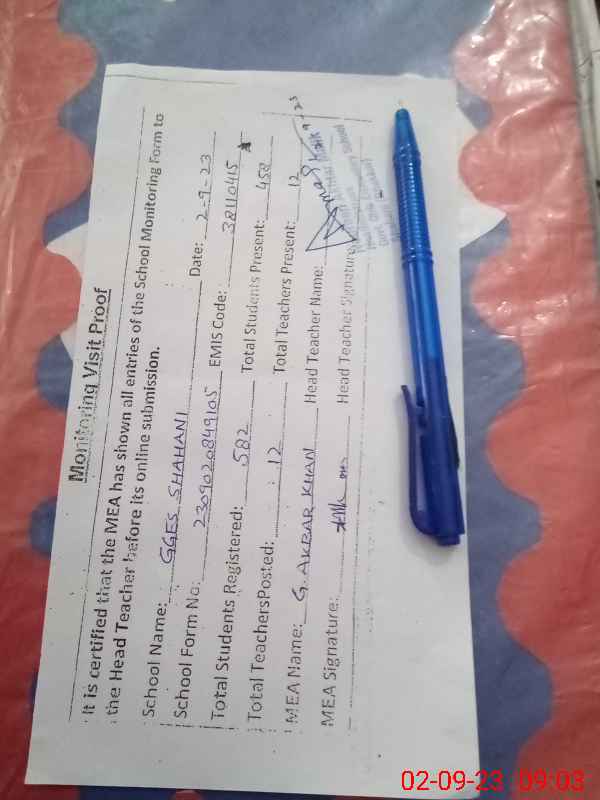 Monitoring Visit Proof
It is certified that the MEA has shown all entries of the School Monitoring Form to
the Head Teacher before its online submission.
School Name: GGES SHAHANI Date: 2-9-23
School Form No: 2309020849105 EMIS Code: 38110115
Total Students Registered: 582 Total Students Present: 458
Total TeachersPosted: 12 Total Teachers Present: 12
MEA Name: G. AKBAR KHAN Head Teacher Name:
MEA Signature: Head Teacher Signature:
02-09-23 09:03